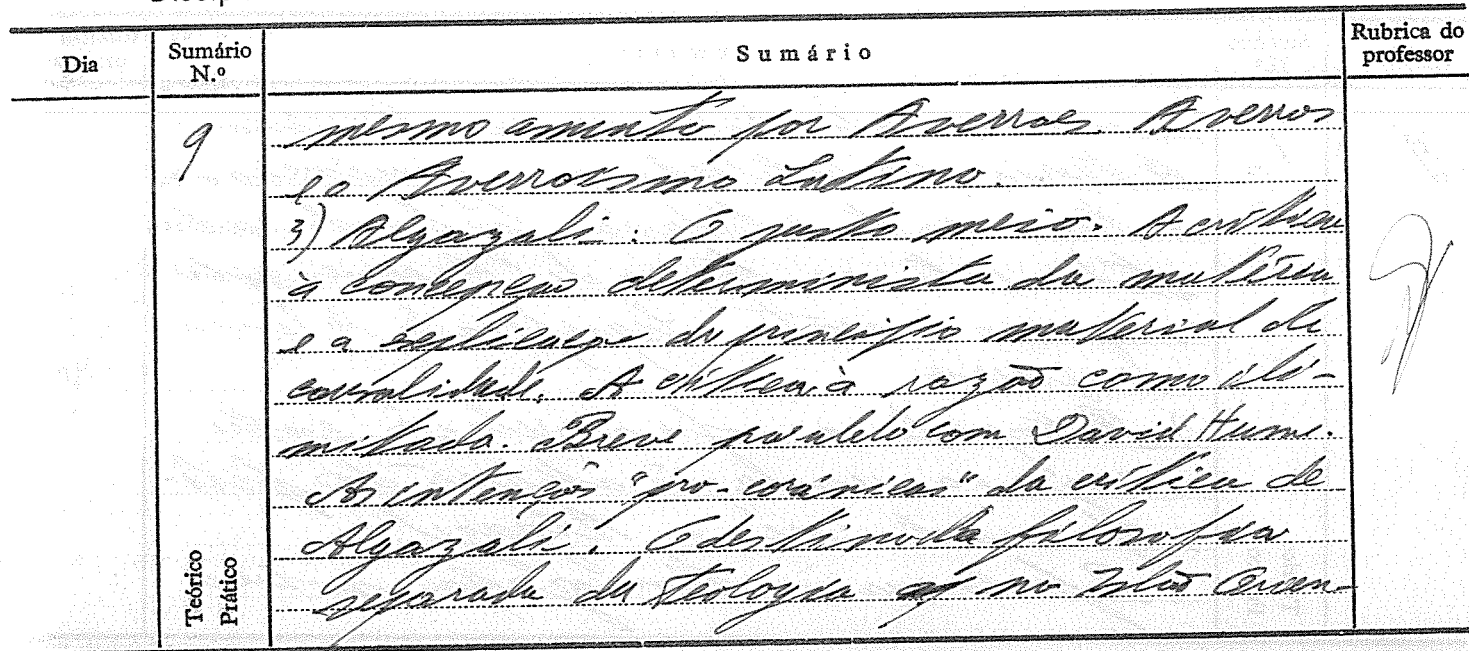 Dia
Sumário N.º
Sumário
Rubrica do professor
9
mesmo assunto por Averroes. Averroes
e o Averroísmo Latino.
3) Algazali: O justo meio. A crítica
à concepção determinista da matéria
e a explicação do princípio material de
causalidade. A crítica à razão como ili-
mitada. Breve paralelo com David Hume.
As intenções "pro-corânicas" da crítica de
Algazali. O destino da filosofia
separada da Teologia no Islão Orien-
Teórico
Prático